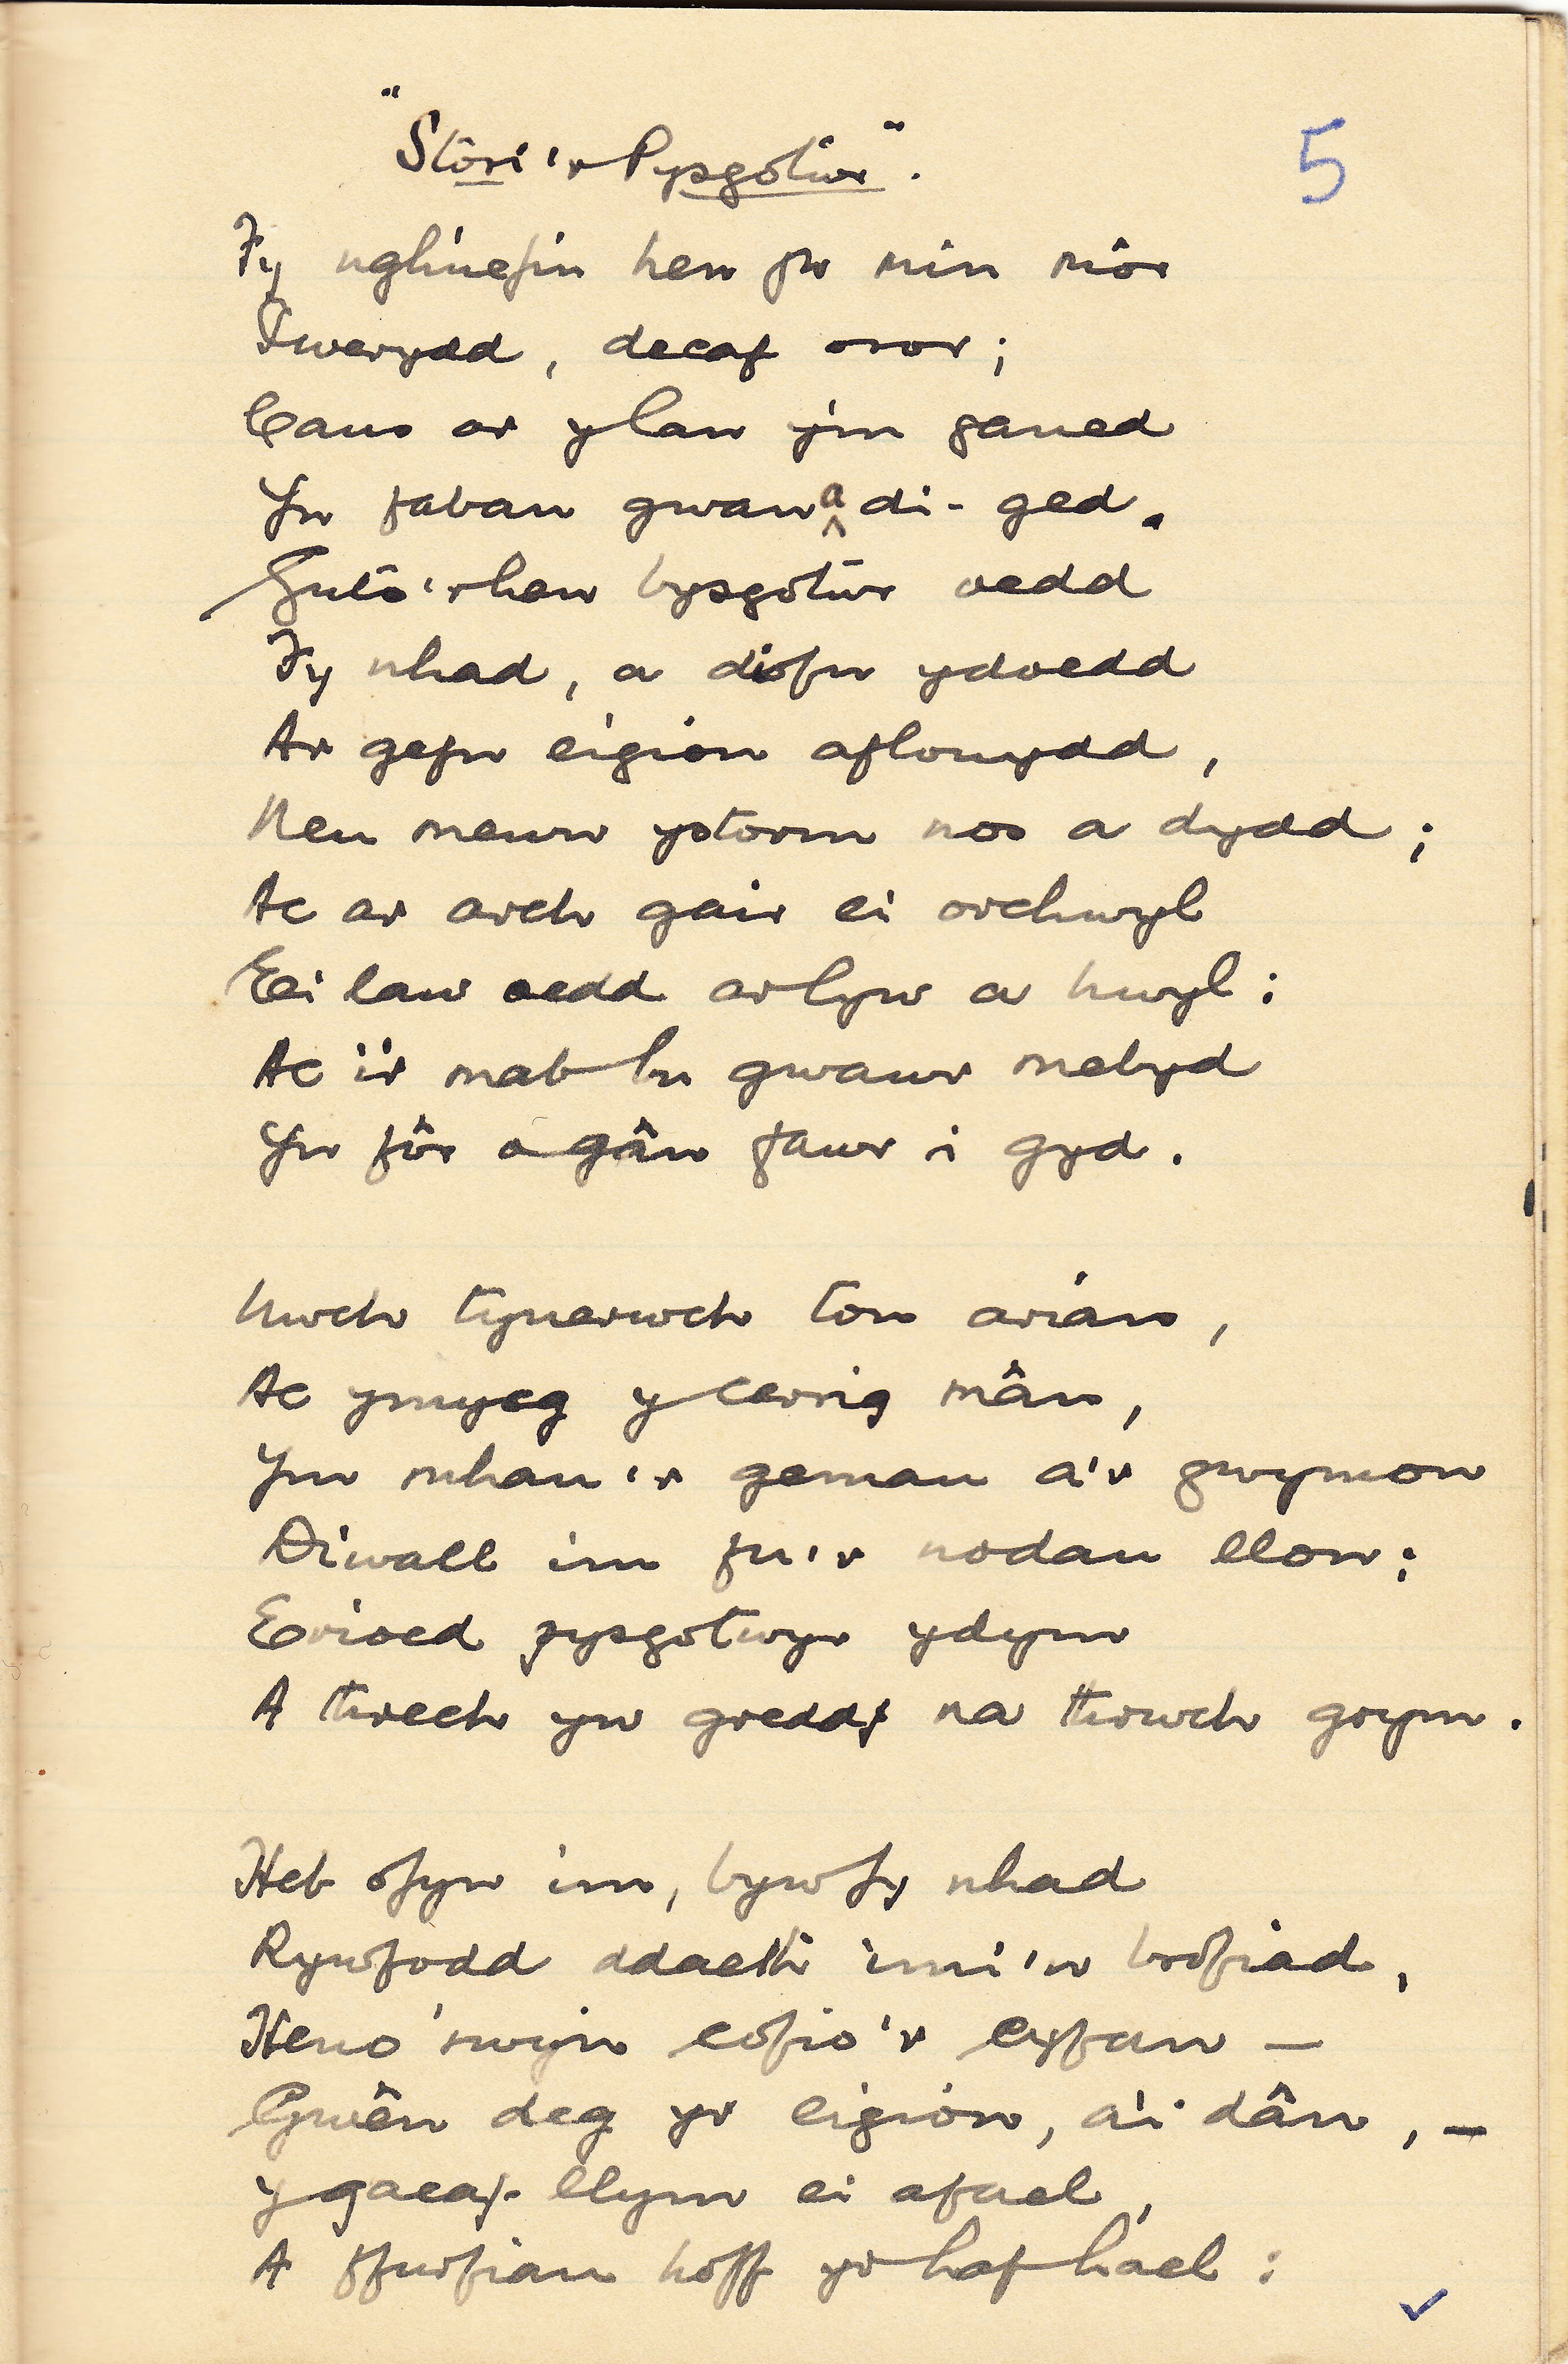 "Stori'r Pysgotwr".
5
Fy nghinefin hen yw min môr
Iwerydd, decaf oror;
Cans ar y lan y'm ganed
Yn faban gwan a di-ged.
Guto'r hen bysgotwr oedd
Fy nhad, a diofn ydoedd
Ar gefn eigion aflonydd,
Neu mewn ystorm nos a dydd;
Ac ar arch gair ei orchwyl
Ei law oedd ar lyw a hwyl:
Ac i'r mab bu gwawr mebyd
Yn fôr a gân fawr i gyd.
Uwch tynerwch ton arian,
Ac ymysg y cerrig mân,
Ym mhau'r gemau a'r gwymon
Diwall im fu'r nodau llon;
Erioed pysgotwyr ydym
A threch yw greddf na thrwch grym.
Heb ofyn im, byw fy nhad
Rywfodd ddaeth imi'n brofiad,
Heno 'rwy'n cofio'r cyfan —
Gwên deg yr eigion, a'i dân, —
Y gaeaf llym ei afael,
A ffurfiau hoff yr haf hael: